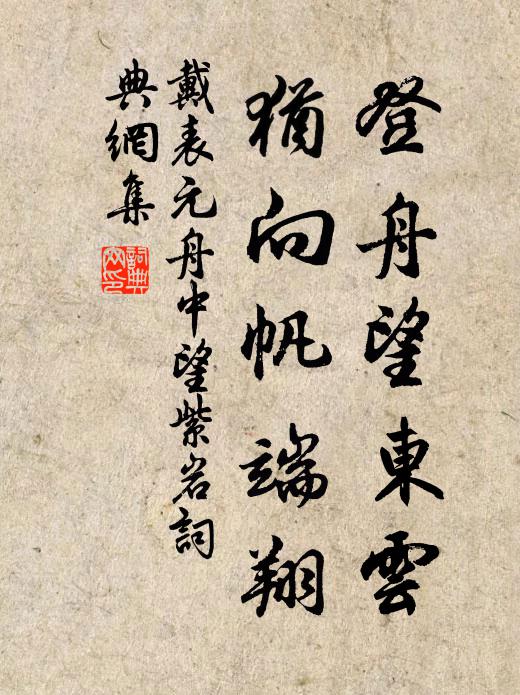 登舟望東雲
猶向帆端翔
戴表元舟中望紫岩詞
典網集
詞典
网印